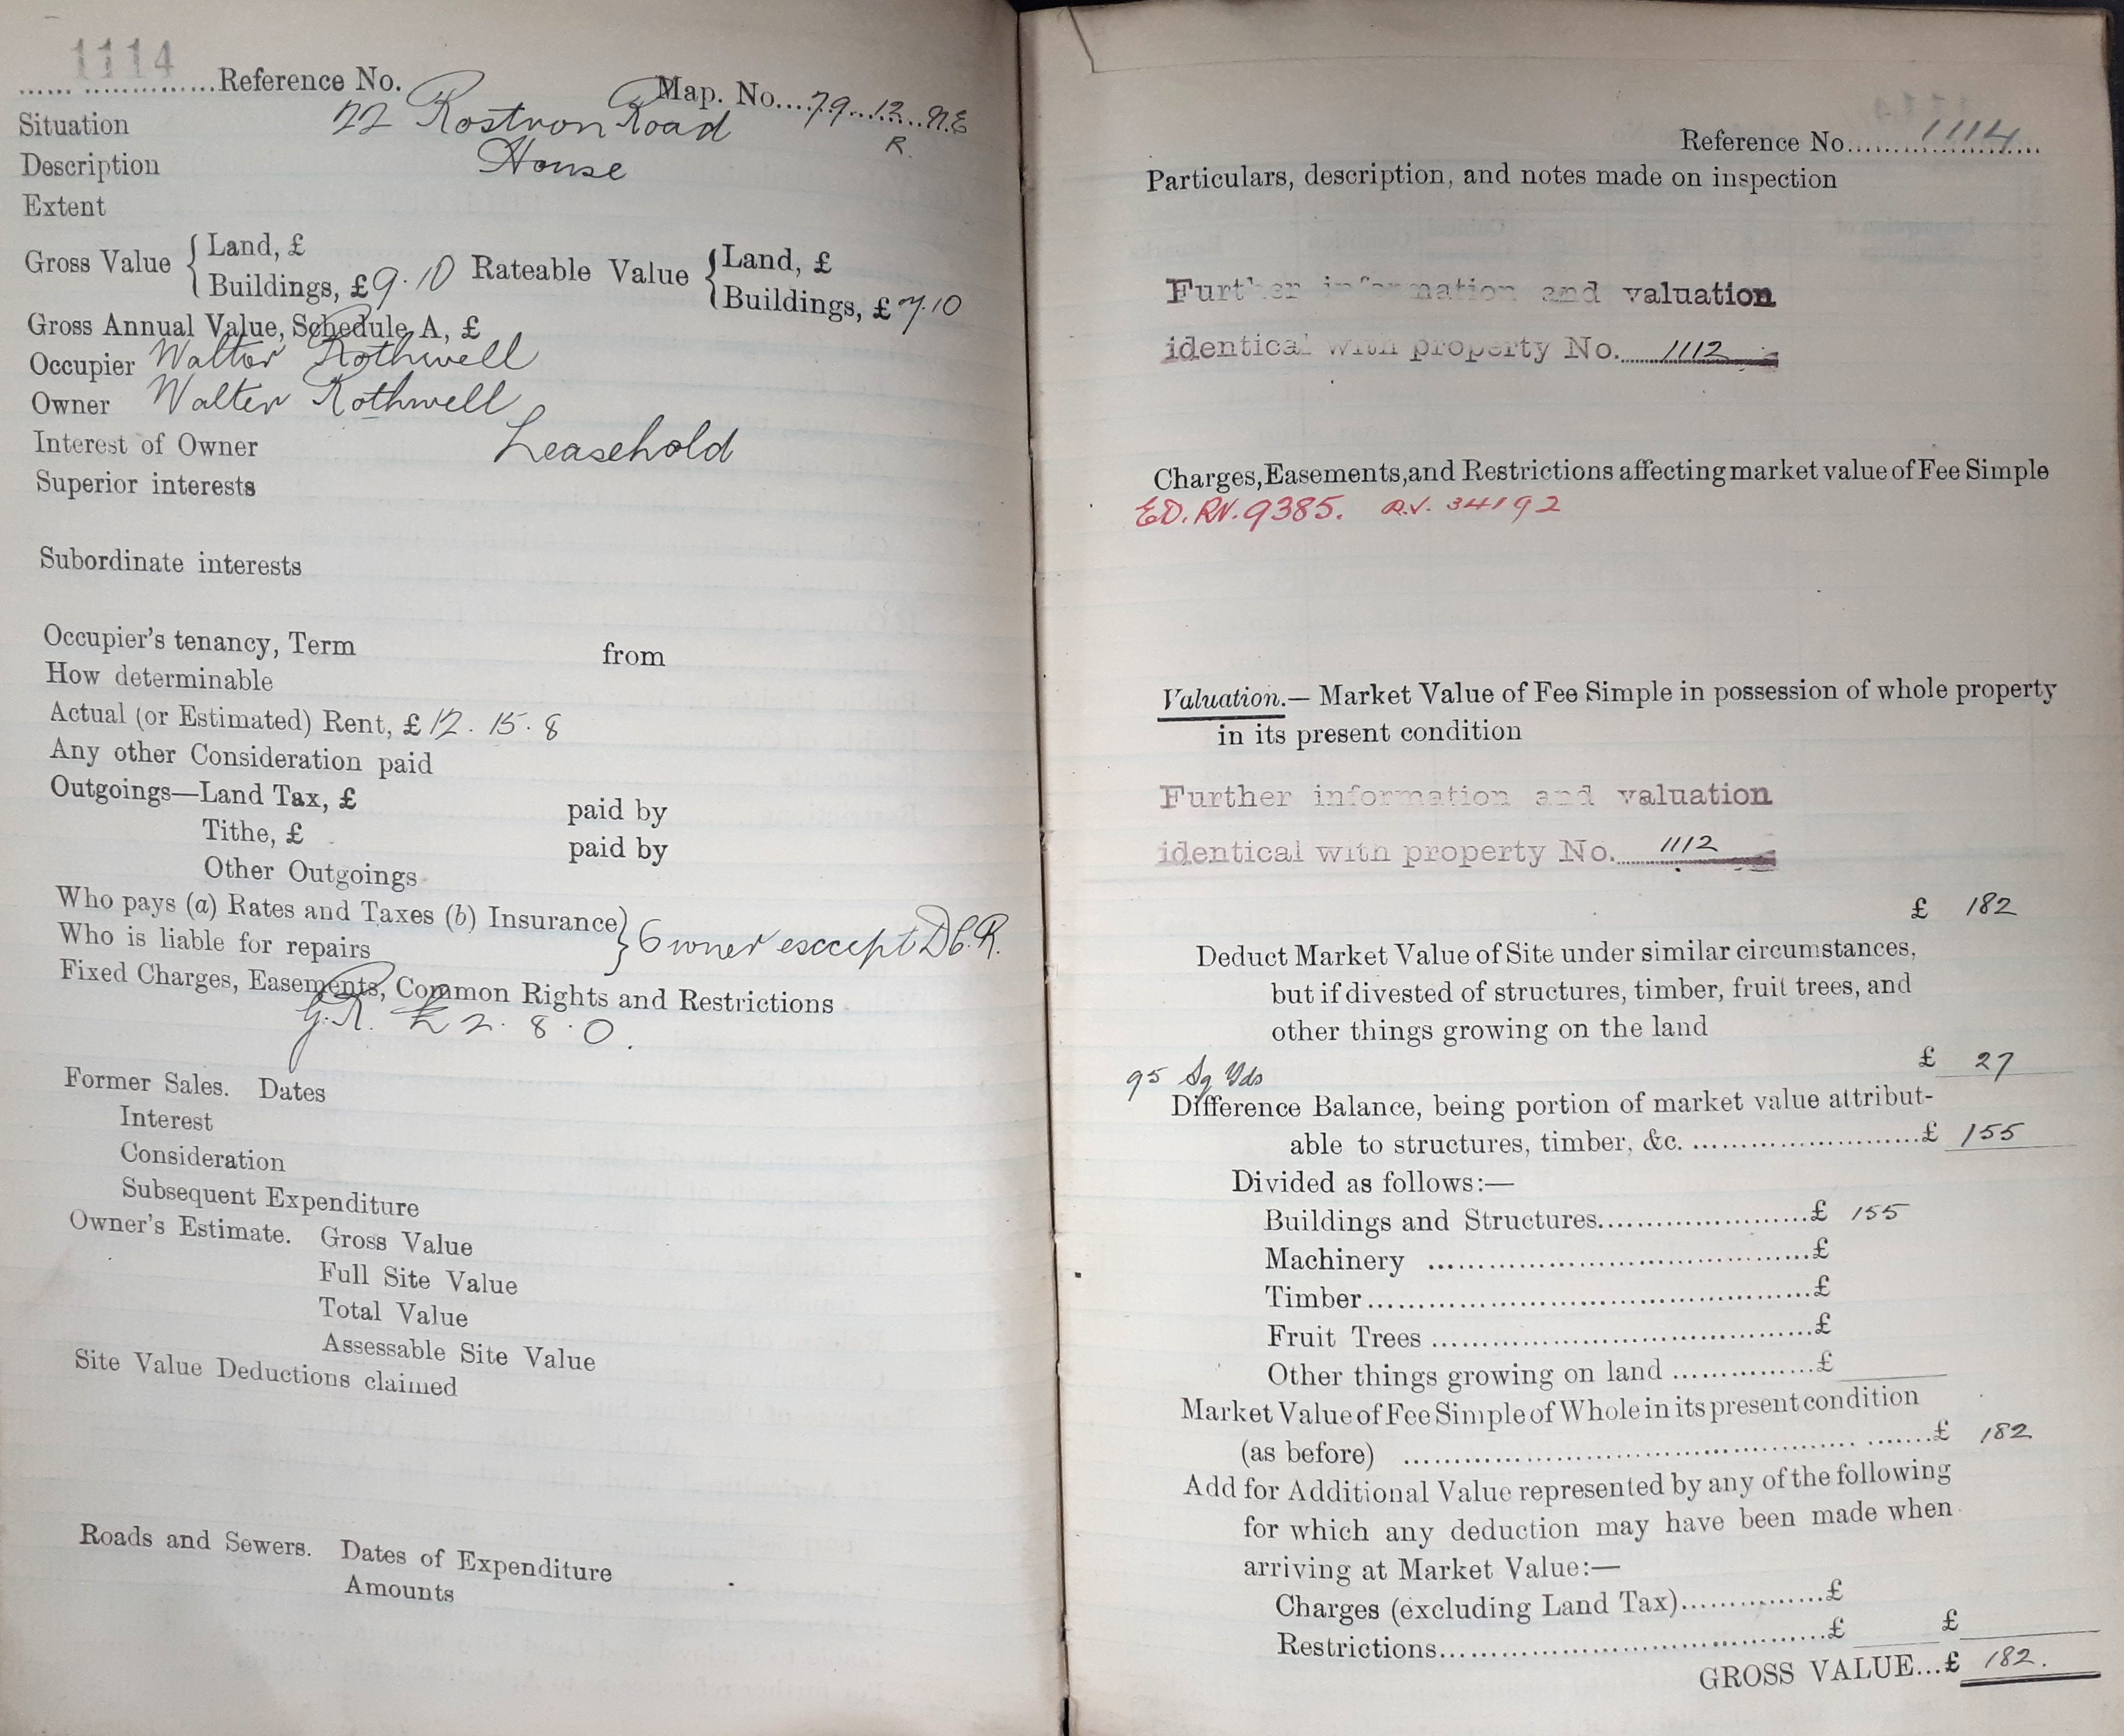 1114
Reference No. Map. No. 79. 12. N.E
R.
Situation 22 Rostron Road
Description House
Extent
Gross Value { Land, £ Rateable Value { Land, £
Buildings, £ 9.10 Buildings, £ 7.10
Gross Annual Value, Schedule A, £
Occupier Walter Rothwell
Owner Walter Rothwell
Interest of Owner Leasehold
Superior interests
Subordinate interests
Occupier's tenancy, Term from
How determinable
Actual (or Estimated) Rent, £ 12. 15. 8
Any other Consideration paid
Outgoings—Land Tax, £ paid by
Tithe, £ paid by
Other Outgoings
Who pays (a) Rates and Taxes (b) Insurance
Who is liable for repairs } Owner except D.C.R.
Fixed Charges, Easements, Common Rights and Restrictions
G.R. £2. 8. 0.
Former Sales. Dates
Interest
Consideration
Subsequent Expenditure
Owner's Estimate. Gross Value
Full Site Value
Total Value
Assessable Site Value
Site Value Deductions claimed
Roads and Sewers. Dates of Expenditure
Amounts
Reference No. 1114
Particulars, description, and notes made on inspection
Further information and valuation
identical with property No. 1112
Charges, Easements, and Restrictions affecting market value of Fee Simple
ED. RV. 9385. R.V. 34192
Valuation.— Market Value of Fee Simple in possession of whole property
in its present condition
Further information and valuation
identical with property No. 1112
£ 182
Deduct Market Value of Site under similar circumstances,
but if divested of structures, timber, fruit trees, and
other things growing on the land
£ 27
95 Sq Yds
Difference Balance, being portion of market value attribut-
able to structures, timber, &c. £ 155
Divided as follows:—
Buildings and Structures £ 155
Machinery £
Timber £
Fruit Trees £
Other things growing on land £
Market Value of Fee Simple of Whole in its present condition
(as before) £ 182
Add for Additional Value represented by any of the following
for which any deduction may have been made when
arriving at Market Value:—
Charges (excluding Land Tax) £
Restrictions £ £
GROSS VALUE...£ 182.